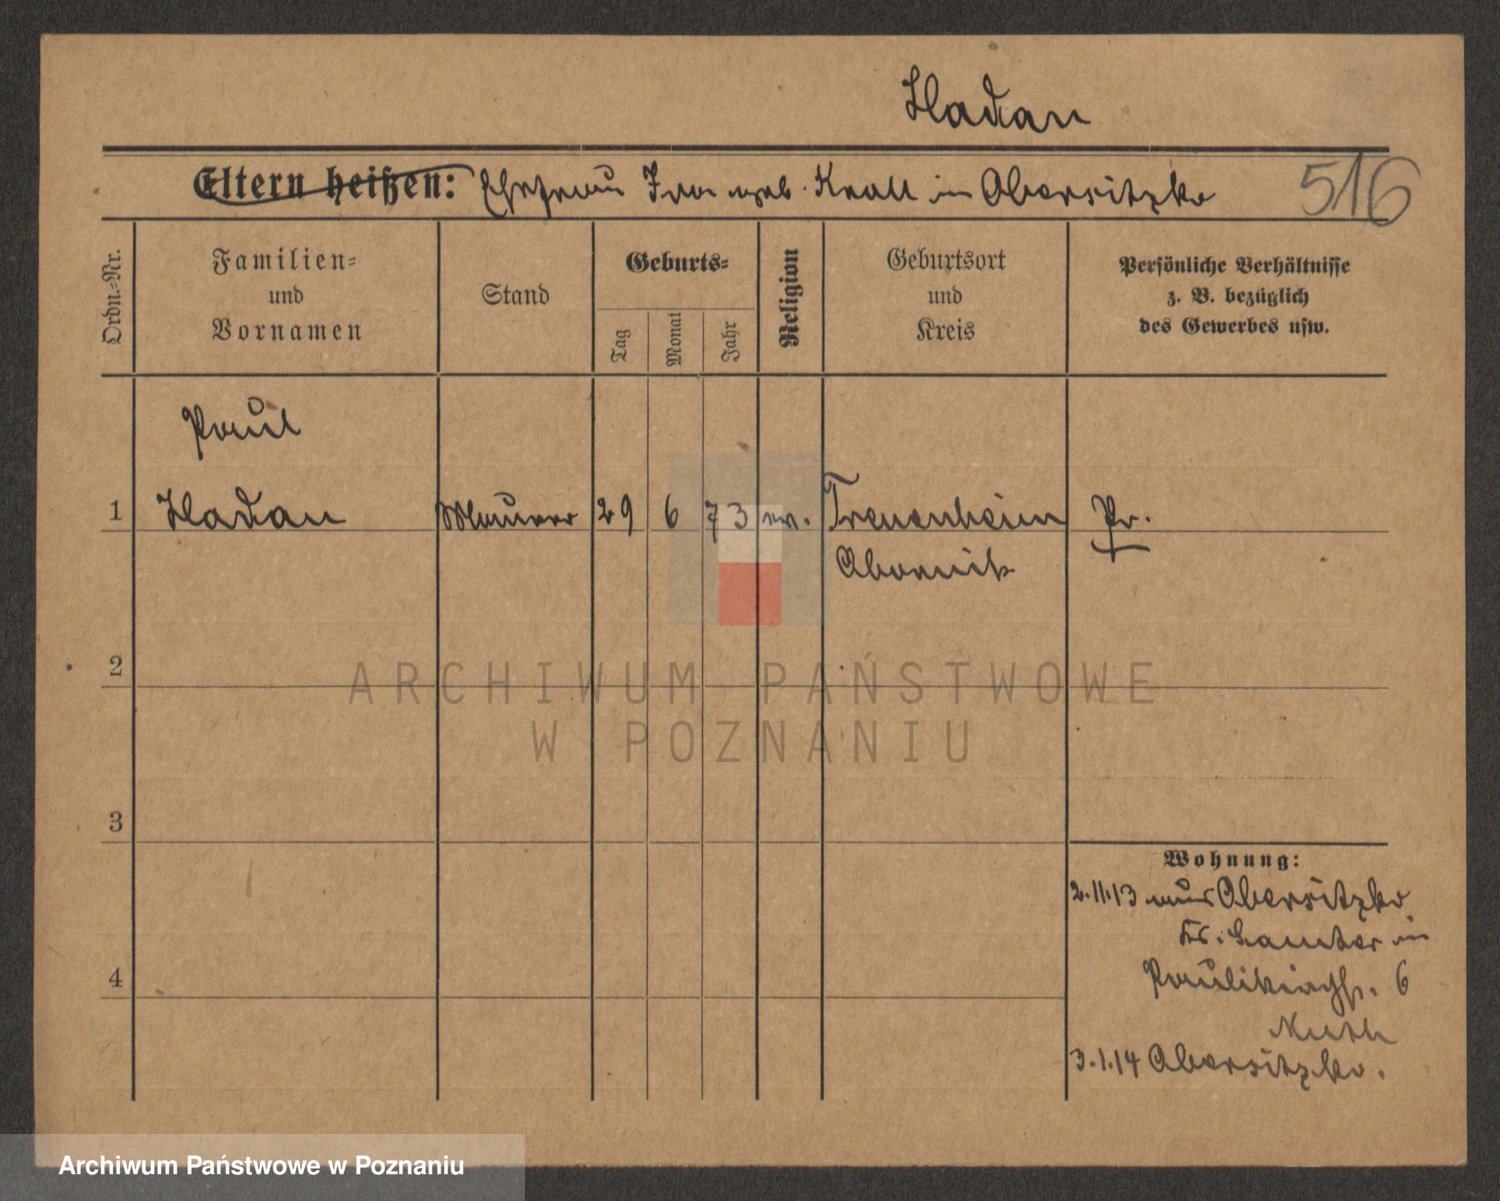 Hadan
Eltern heißen: Ehefrau Ida geb. Krall in Obersitzko
516
Ordn.-Nr.
Familien-
und
Vornamen
Stand
Geburts-
Tag
Monat
Jahr
Religion
Geburtsort
und
Kreis
Persönliche Verhältnisse
z. B. bezüglich
des Gewerbes usw.
Paul
1 Hadan Maurer 29 6 73 ev. Treuenheim Pr.
Obornik
2
ARCHIWUM PAŃSTWOWE
W POZNANIU
3
Wohnung:
2.11.13 aus Obersitzko
Kr. Samter in
Paulikirchstr. 6
4
3.1.14 Obersitzko.
Archiwum Państwowe w Poznaniu